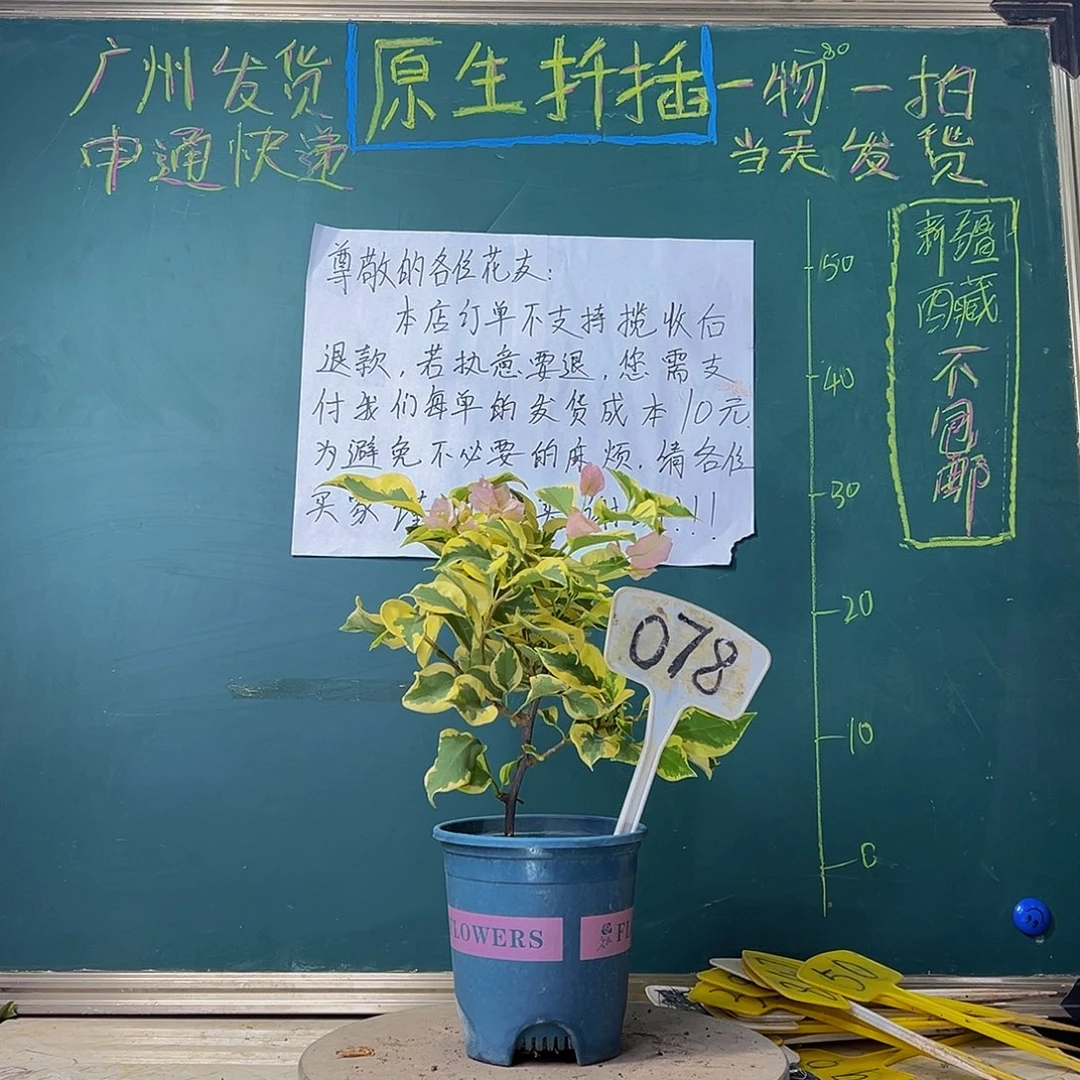 广州发货
申通快递
原生扦插
一物一拍
80
当天发货
新疆
西藏
不包邮
50
40
30
20
10
0
尊敬的各位花友:
本店订单不支持揽收后
退款,若执意要退,您需支
付我们每单的发货成本10元
为避免不必要的麻烦.请各位
买家谨
!!!
078
LOWERS
FL
50